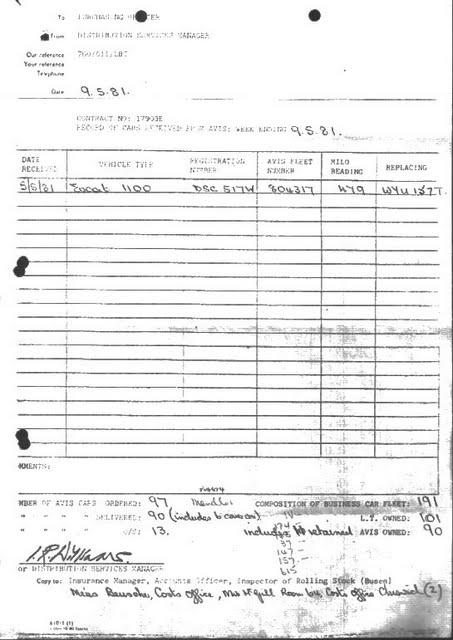 To PURCHASING OFFICER
From DISTRIBUTION SERVICES MANAGER
Our reference 760/011/LBT
Your reference
Telephone
Date 9.5.81.
CONTRACT NO: 17903E
RECORD OF CARS RECEIVED FROM AVIS: WEEK ENDING 9.5.81.
DATE RECEIVED VEHICLE TYPE REGISTRATION NUMBER AVIS FLEET NUMBER MILO READING REPLACING
5/5/81 Escort 1100 DSC 517W 804317 479 WYU 157T.
MMENTS:
MBER OF AVIS CARS ORDERED: 97 COMPOSITION OF BUSINESS CAR FLEET: 191
" " " DELIVERED: 90 (includes 6 L.T. OWNED: 101
" " " O/S: 13. includes retained AVIS OWNED: 90
37
147
157
615
or DISTRIBUTION SERVICES MANAGER
Copy to: Insurance Manager, Accounts Officer, Inspector of Rolling Stock (Buses)
Miss Costs Office, Mrs McGill Room 64, Costs Office Chiswick (2)